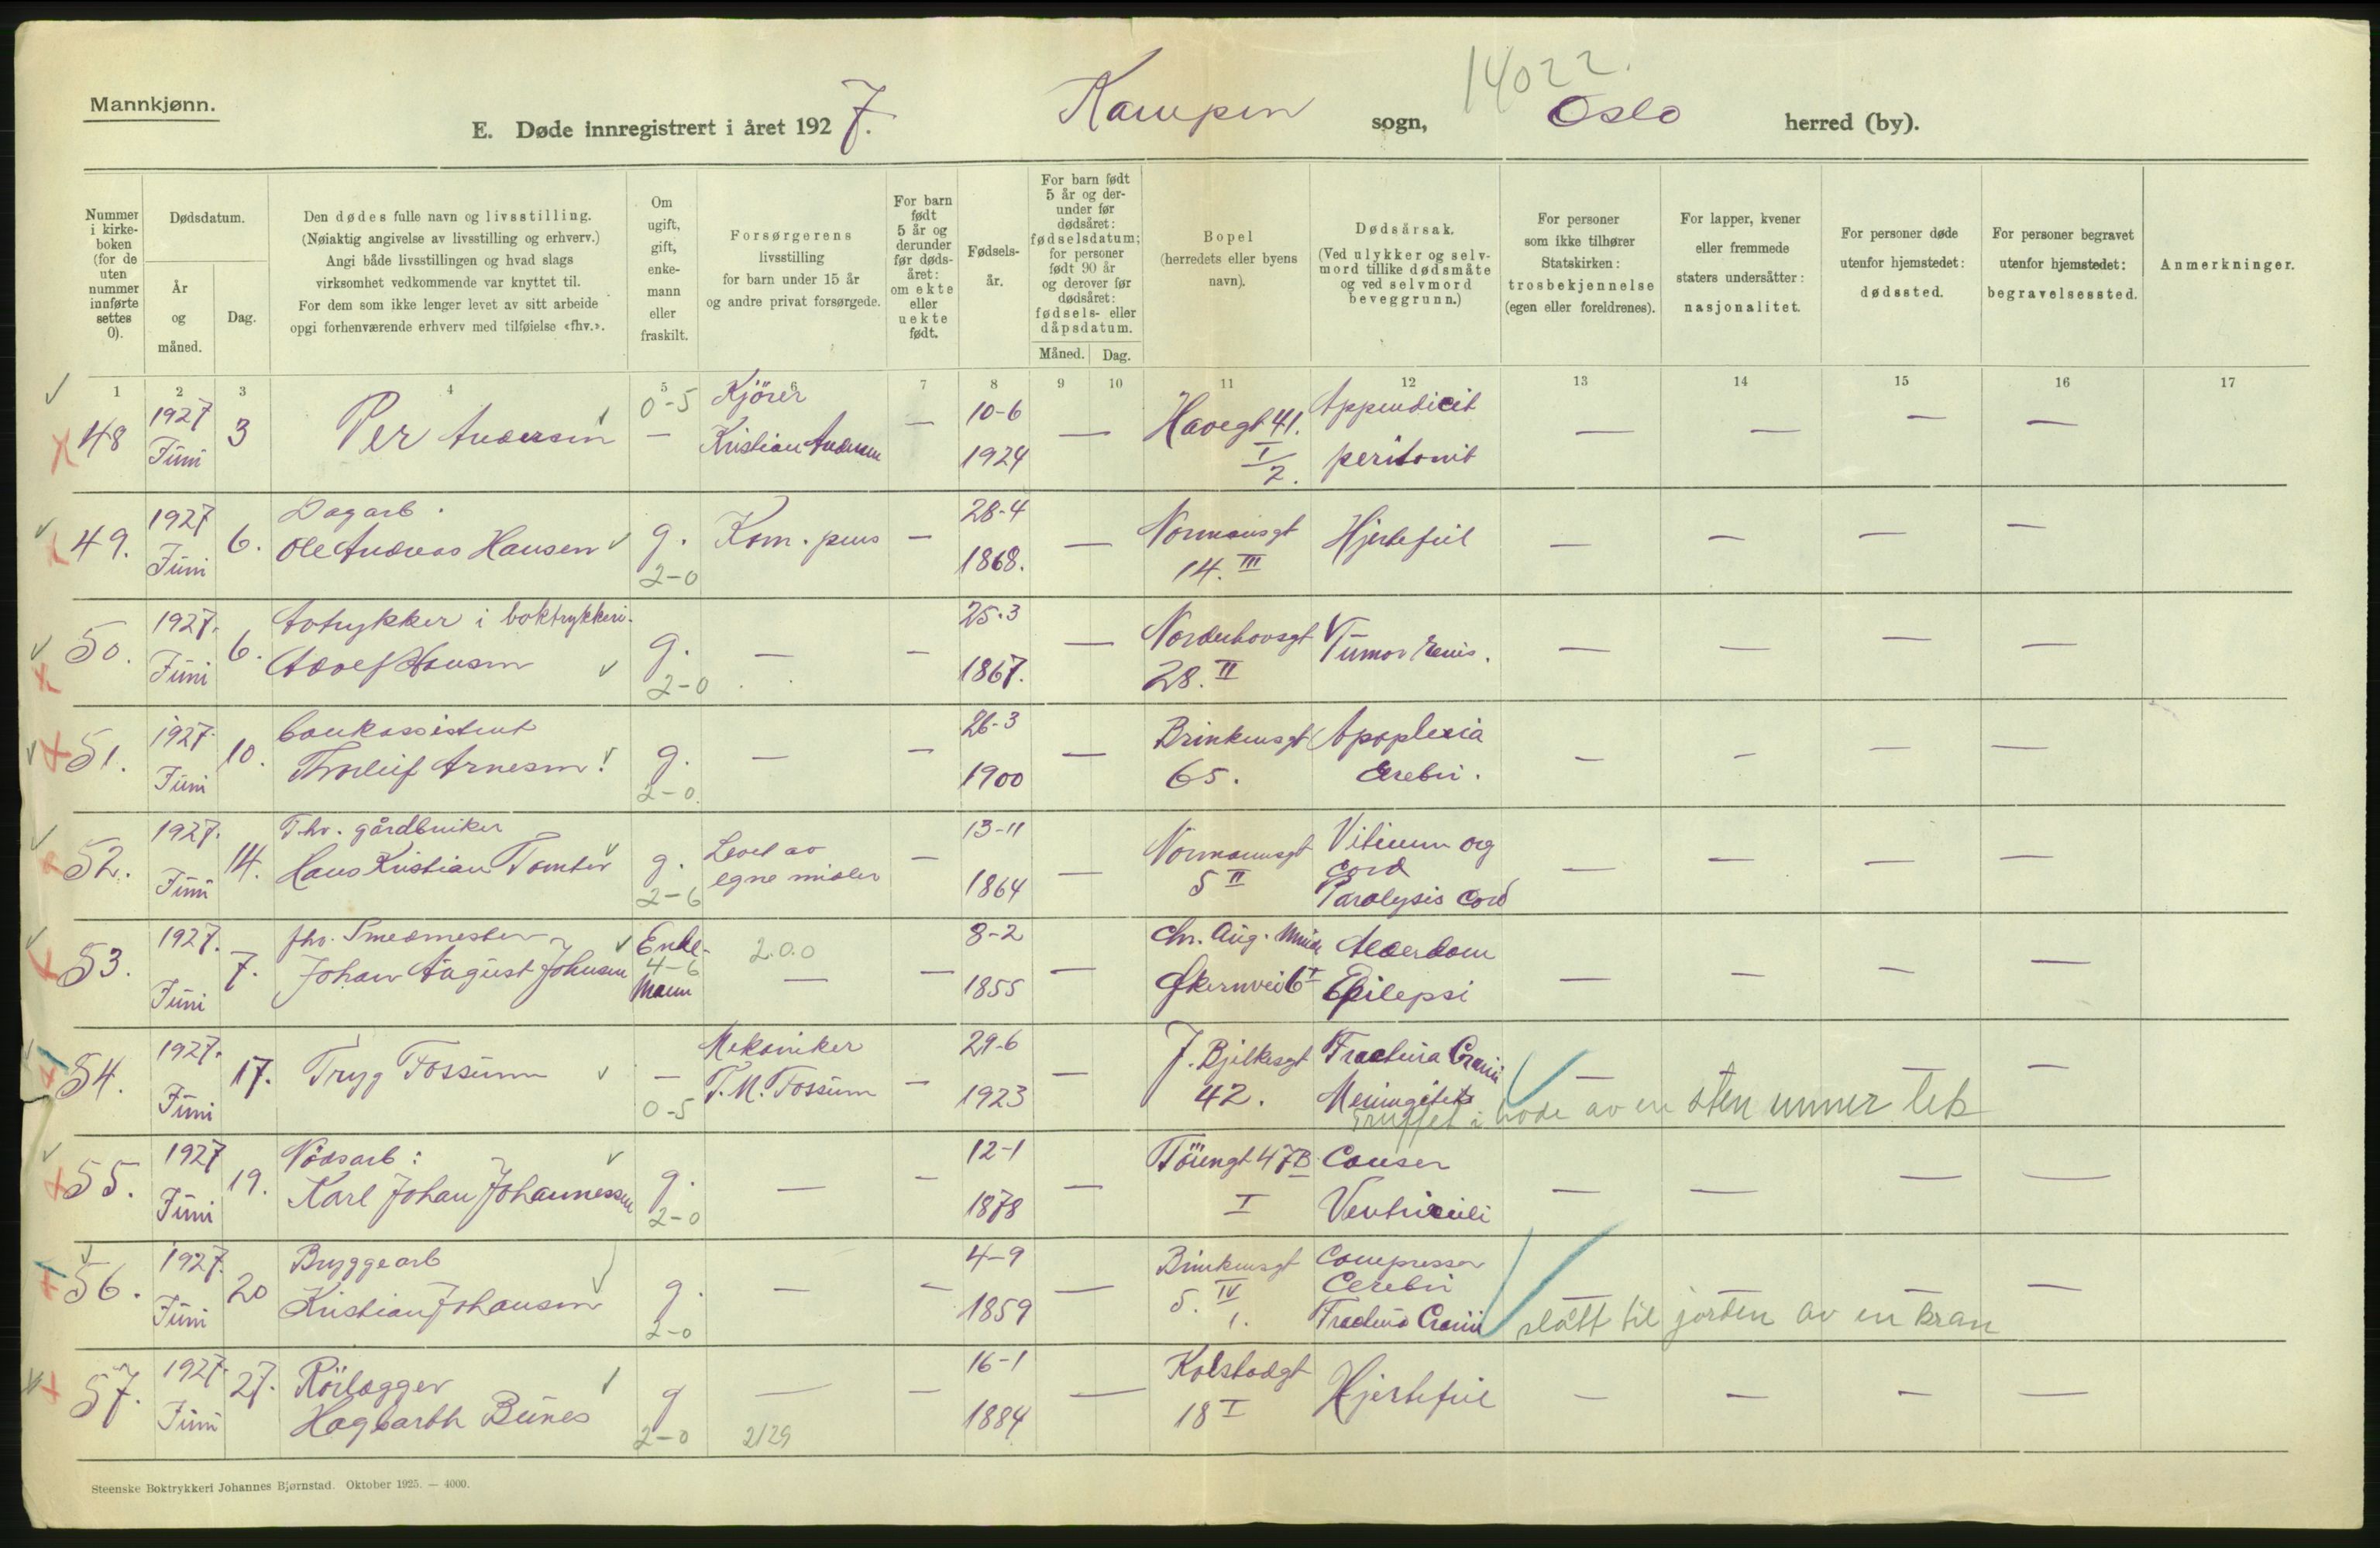 14022.
Mannkjønn.
E. Døde innregistrert i året 1927. Kampen sogn, Oslo herred (by).
Nummer i kirkeboken (for de uten nummer innførte settes 0).
Dødsdatum.
År og måned.
Dag.
Den dødes fulle navn og livsstilling.
(Nøiaktig angivelse av livsstilling og erhverv.)
Angi både livsstillingen og hvad slags
virksomhet vedkommende var knyttet til.
For dem som ikke lenger levet av sitt arbeide
opgi forhenværende erhverv med tilføielse «fhv.».
Om ugift, gift, enkemann eller fraskilt.
Forsørgerens
livsstilling
for barn under 15 år
og andre privat forsørgede.
For barn født 5 år og derunder før dødsåret: om ekte eller uekte født.
Fødsels-
år.
For barn født 5 år og derunder før dødsåret: fødselsdatum; for personer født 90 år og derover før dødsåret: fødsels- eller dåpsdatum.
Måned. Dag.
Bopel
(herredets eller byens
navn).
Dødsårsak.
(Ved ulykker og selv-
mord tillike dødsmåte
og ved selvmord
beveggrunn.)
For personer
som ikke tilhører
Statskirken:
trosbekjennelse
(egen eller foreldrenes).
For lapper, kvener
eller fremmede
staters undersåtter:
nasjonalitet.
For personer døde
utenfor hjemstedet:
dødssted.
For personer begravet
utenfor hjemstedet:
begravelsessted.
Anmerkninger.
1 2 3 4 5 6 7 8 9 10 11 12 13 14 15 16 17
48 1927 Juni 3 Per Andersen 0-5 — Kjörer Kristian Andersen — 10-6 1924 — Havegt 41. I/2. Appendicit peritonit — — — —
49. 1927 Juni 6. Dagarb. Ole Andreas Hansen g. 2-0 Kom. pens — 28-4 1868. — Normansgt 14. III Hjertefeil — — — —
50. 1927. Juni 6. Avtrykker i boktrykkeri. Adolf Hansen g. 2-0 — — 25.3 1867. — Norderhovsgt 28. II Tumor renis. — — — —
51. 1927. Juni 10. bankassistent Thorleif Arnesen g. 2-0 — — 26-3 1900 — Brinkensgt 65. Apoplexia Cerebri. — — — —
52. 1927. Juni 14. Fhv. gårdbruker Hans Kristian Tomter g. 2-6 Levet av egne midler — 13-11 1864 — Normannsgt 5 II Vitium org cord Paralysis cord — — — —
53. 1927. Juni 7. fhv. Smedmester Johan August Johnsen Enke- 4-6 Mann 2.0.0 — — 8-2 1855 — Chr. Aug. Økernvei 6 I Alderdom Epilepsi — — — —
54. 1927. Juni 17. Tryg Fossum — 0-5 Mekaniker T.M. Fossum — 29-6 1923 — J. Bjelkesgt 42. Fractura Cranii Meningitis — — —
truffet i hode av en sten unner lek
55. 1927 Juni 19. Nödsarb: Karl Johan Johannessen g. 2-0 — — 12-1 1878 — Töiengt 47B I Cancer Ventriculi — — — —
56. 1927. Juni 20 Bryggearb Kristian Johansen g. 2-0 — — 4-9 1859 — Brinkensgt 5. IV 1. Compressor Cerebri Fractura Cranii —
slått til jorden av en kran
57. 1927. Juni 27. Rörlegger Hagbarth Bunes g 2-0 — 2129 — 16-1 1884 — Kolstadgt 18 I Hjertefeil — — — —
Steenske Boktrykkeri Johannes Bjørnstad. Oktober 1925. — 4000.